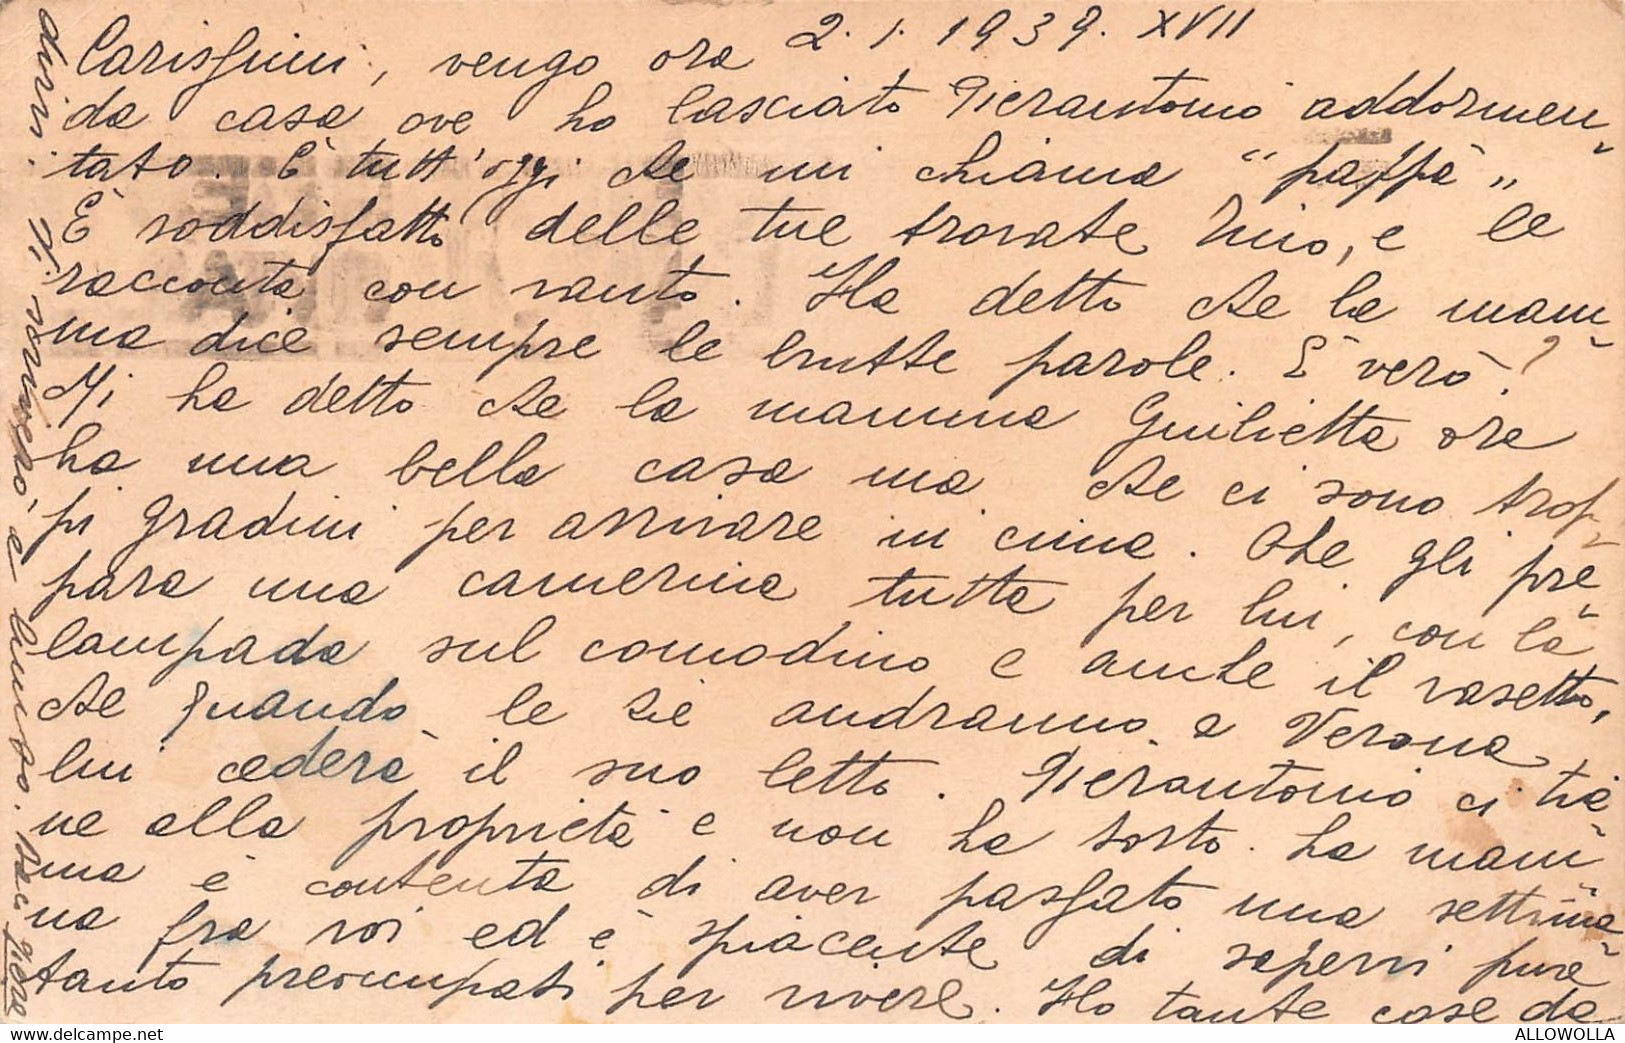 2.1.1939. XVII
Carissimi, vengo ora
da casa ove ho lasciato Pierantonio addormen-
tato. È tutt'oggi che mi chiama "pappà"
È soddisfatto delle tue trovate Nino, e le
racconta con vanto. Ha detto che la mam-
ma dice sempre le brutte parole. È vero?
Mi ha detto che la mamma Guilietta ora
ha una bella casa ma che ci sono trop-
pi gradini per arrivare in cima. Che gli pre-
para una camerina tutta per lui, con la
lampada sul comodino e anche il vasetto,
che quando le zie andranno a Verona
lui cederà il suo letto. Pierantonio ci tie-
ne alla proprietà e non ha torto. La mam-
ma è contenta di aver passato una settima-
na fra voi ed è spiacente di sapervi pure
tanto preoccupati per vivere. Ho tante cose da
dirvi. Vi scriverò a lungo. Baci giore
ALLOWOLLA